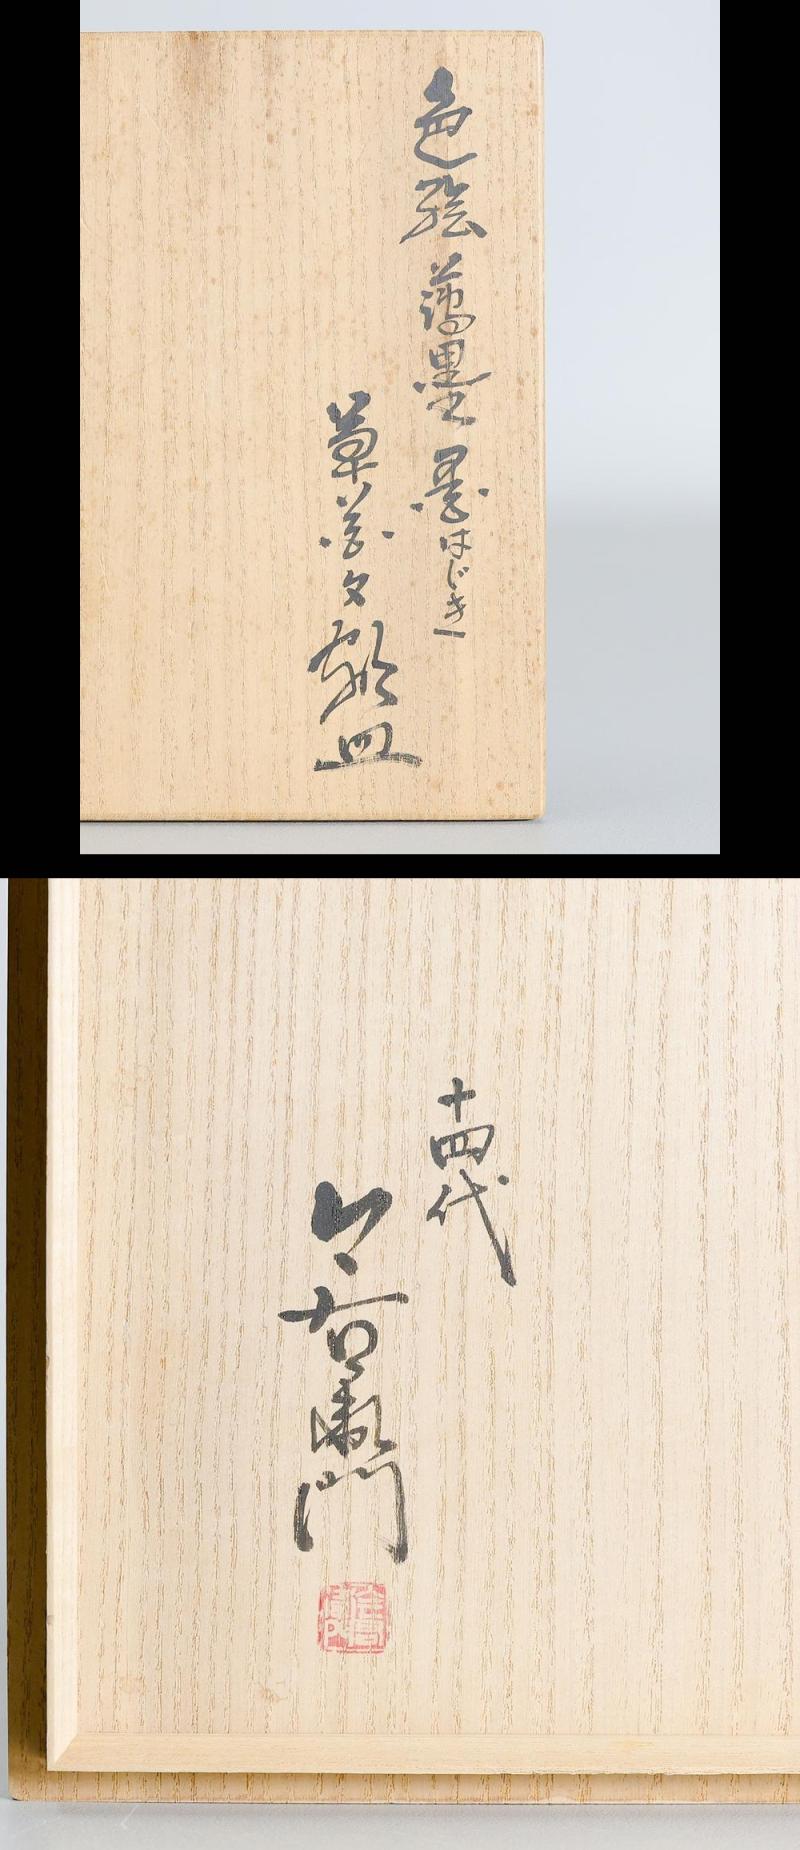 色絵薄墨墨はじき
草花文額皿
十四代
今右衛門